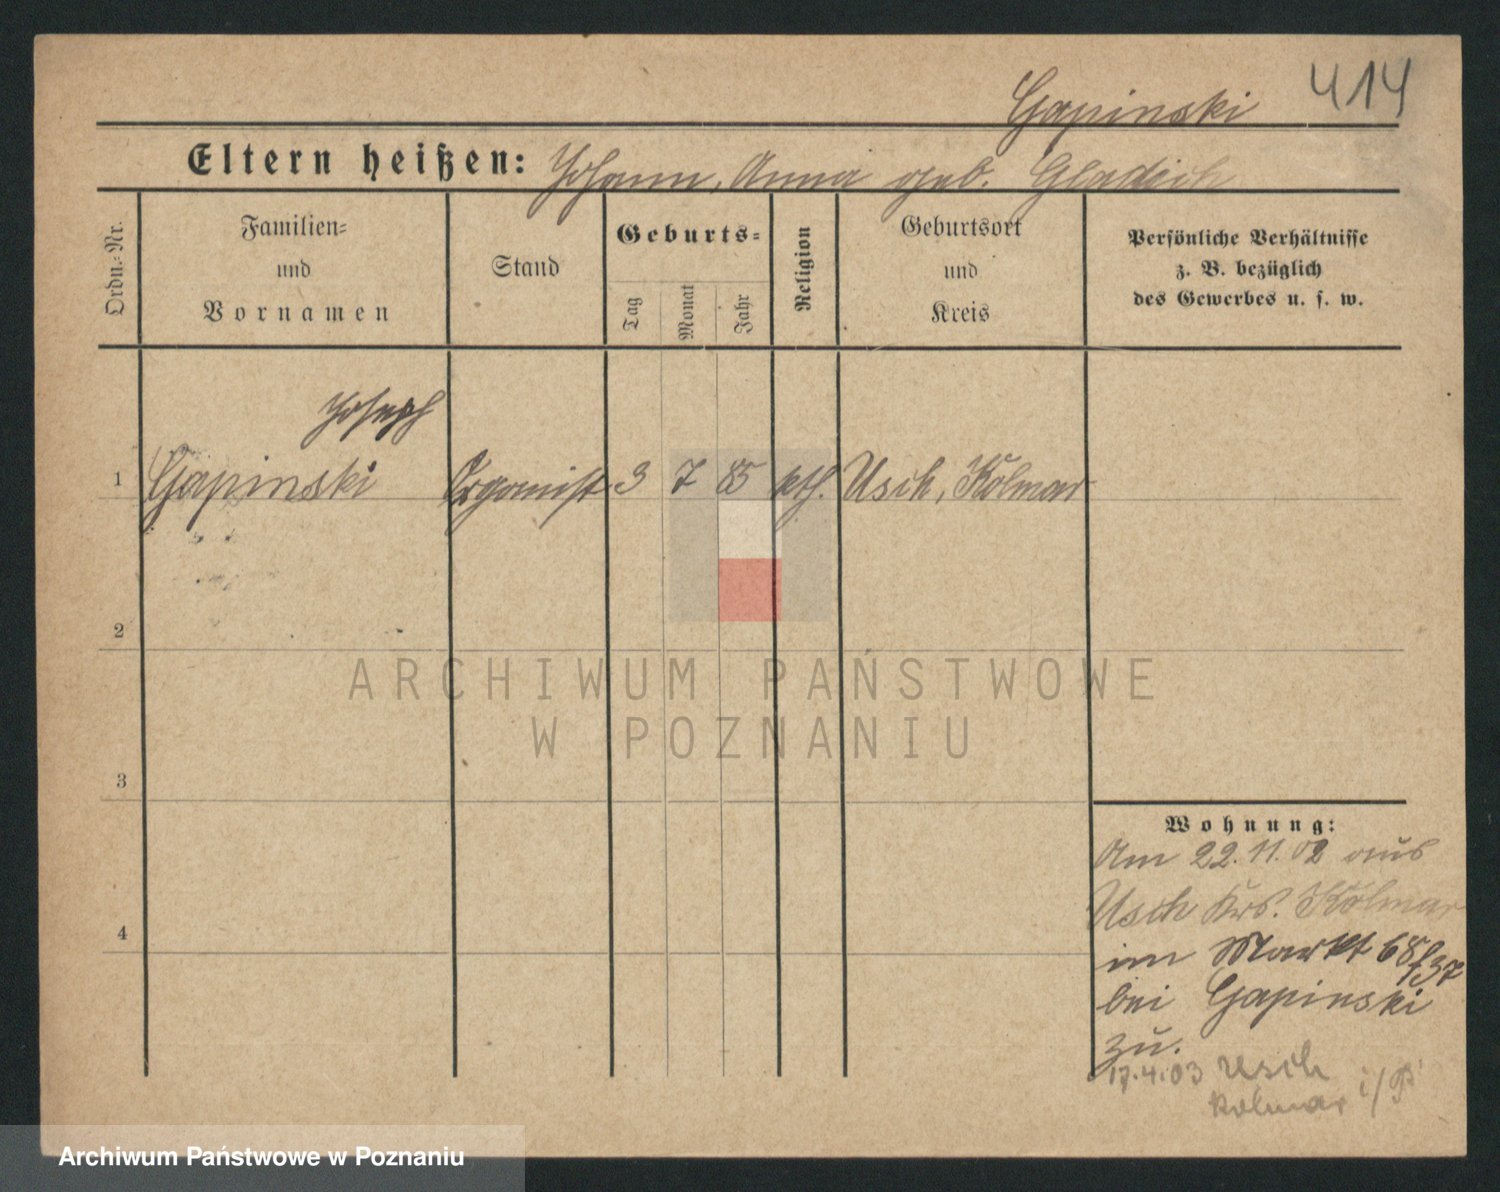 Gapinski 414
Eltern heißen: Johann, Anna geb. Gladich
Ordn.-Nr.
Familien-
und
Vornamen
Stand
Geburts-
Tag
Monat
Jahr
Religion
Geburtsort
und
Kreis
Persönliche Verhältnisse
z. B. bezüglich
des Gewerbes u. s. w.
Joseph
1 Gapinski Organist 3 7 85 kth. Usch, Kolmar
2
3
4
Wohnung:
Am 22.11.02 aus
Usch Krs. Kolmar
im Markt 68
bei Gapinski
zu.
17.4.03 Usch
Kolmar i/P
ARCHIWUM PAŃSTWOWE
W POZNANIU
Archiwum Państwowe w Poznaniu